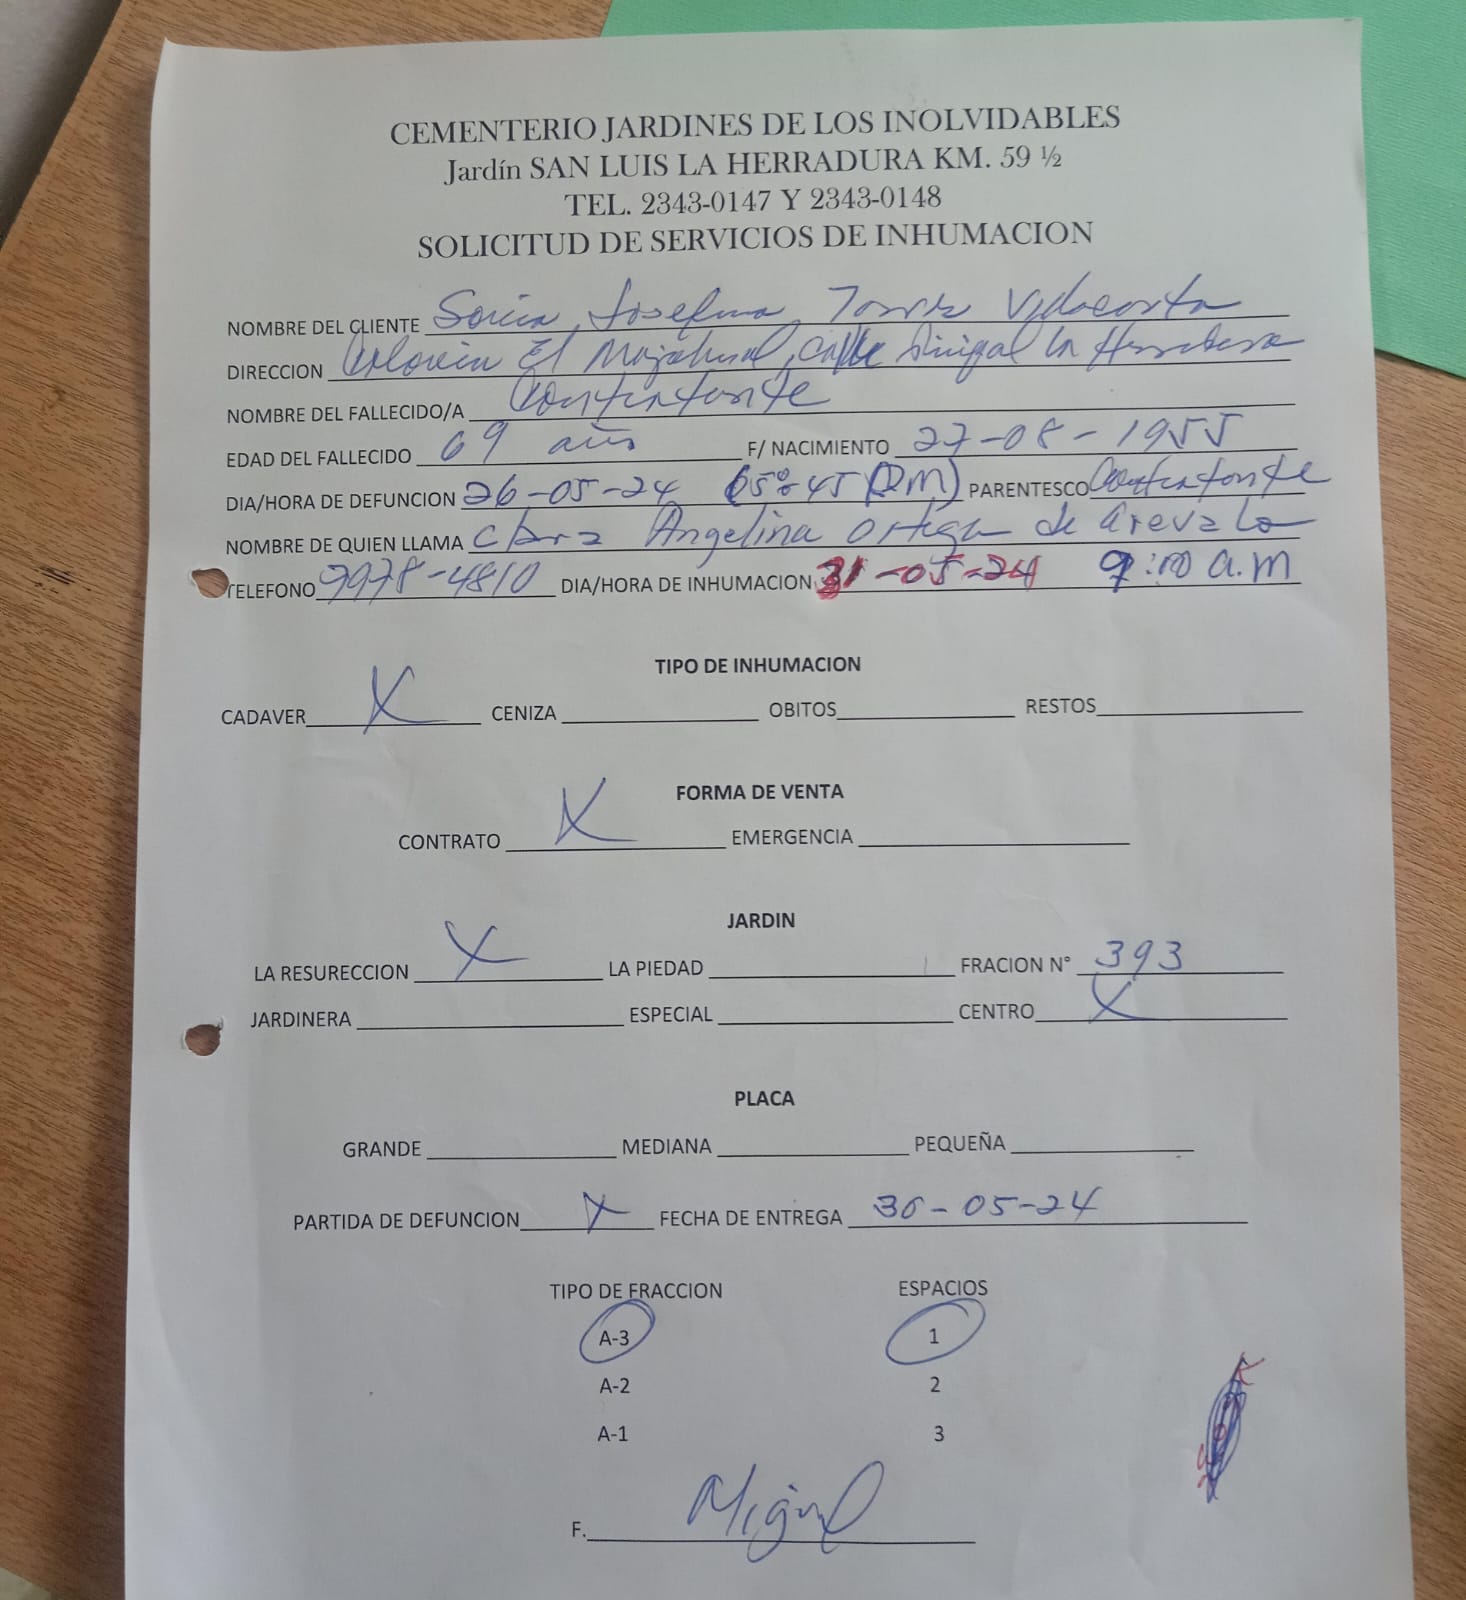 CEMENTERIO JARDINES DE LOS INOLVIDABLES
Jardín SAN LUIS LA HERRADURA KM. 59 ½
TEL. 2343-0147 Y 2343-0148
SOLICITUD DE SERVICIOS DE INHUMACION
NOMBRE DEL CLIENTE Sonia Josefina Torres Villacorta
DIRECCION Colonia El Majahual, calle La Herradura
NOMBRE DEL FALLECIDO/A
EDAD DEL FALLECIDO 69 años F/ NACIMIENTO 27-08-1955
DIA/HORA DE DEFUNCION 26-05-24 05:45 (PM) PARENTESCO
NOMBRE DE QUIEN LLAMA Clara Angelina Ortega de Arevalo
TELEFONO 7978-4810 DIA/HORA DE INHUMACION 31-05-24 9:00 a.m
TIPO DE INHUMACION
CADAVER X CENIZA OBITOS RESTOS
FORMA DE VENTA
CONTRATO X EMERGENCIA
JARDIN
LA RESURECCION X LA PIEDAD FRACION N° 393
JARDINERA ESPECIAL CENTRO X
PLACA
GRANDE MEDIANA PEQUEÑA
PARTIDA DE DEFUNCION X FECHA DE ENTREGA 30-05-24
TIPO DE FRACCION ESPACIOS
A-3 1
A-2 2
A-1 3
F. Miguel